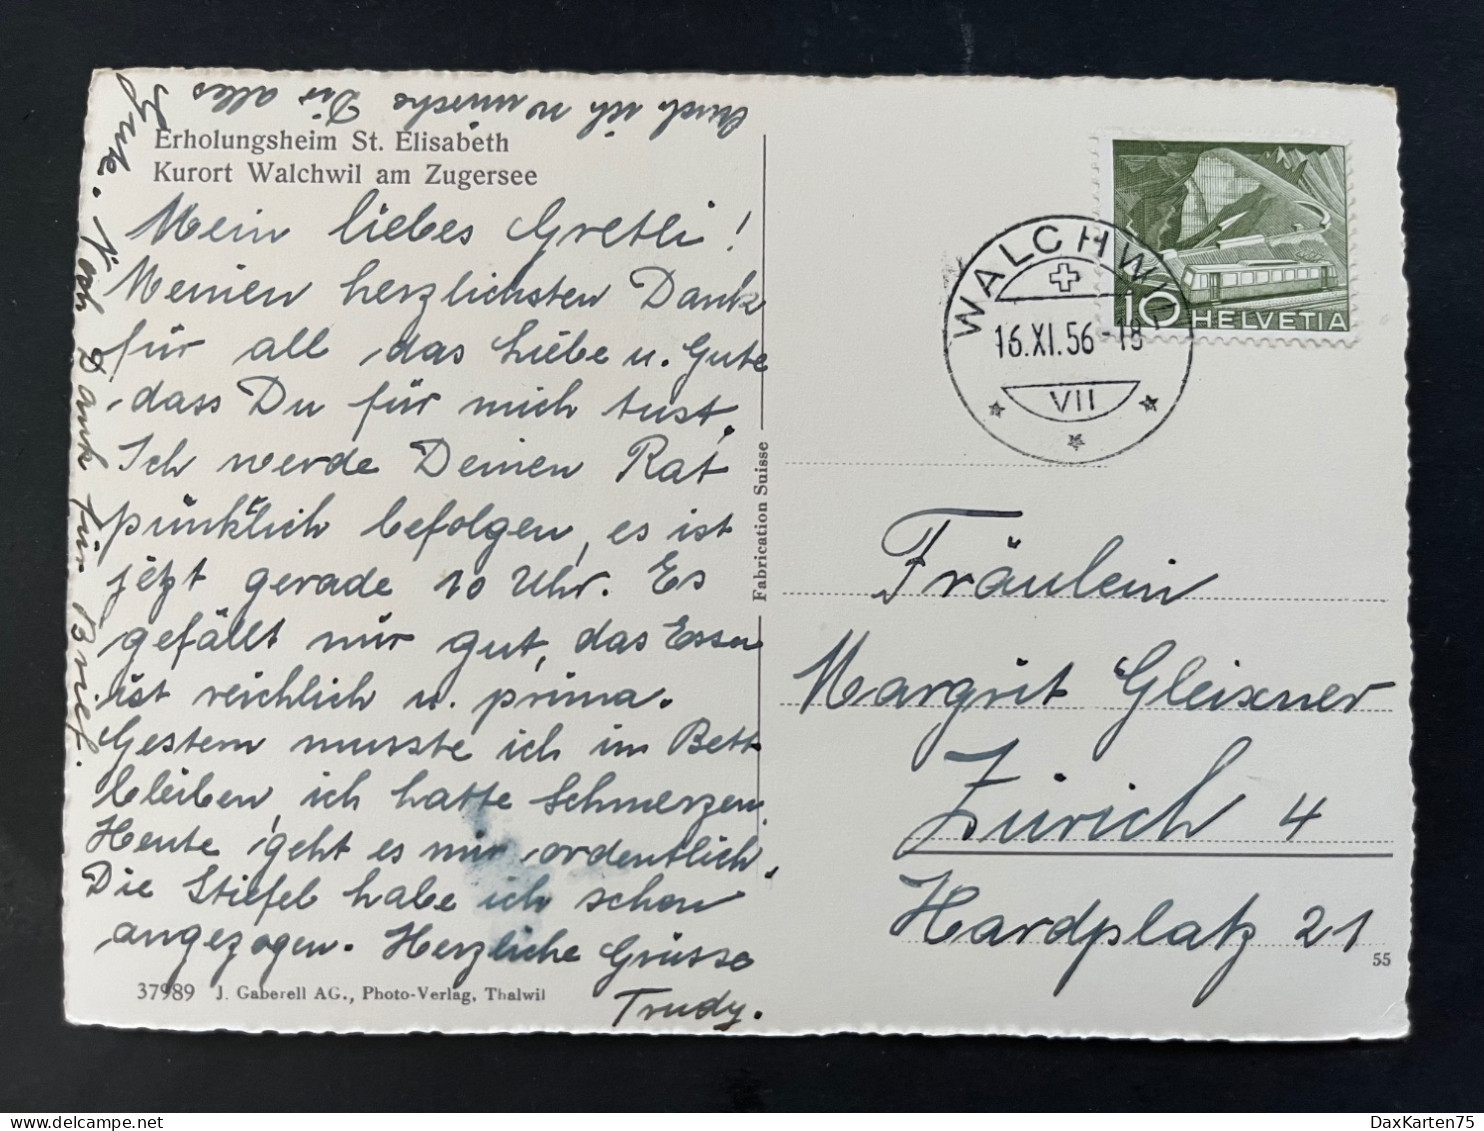 Erholungsheim St. Elisabeth
Kurort Walchwil am Zugersee
Mein liebes Gretli!
Meinen herzlichsten Dank
für all das Liebe u. Gute
dass Du für mich tust.
Ich werde Deinen Rat
pünktlich befolgen, es ist
jetzt gerade 10 Uhr. Es
gefällt mir gut, das Essen
ist reichlich u. prima.
Gestern musste ich im Bett
bleiben, ich hatte Schmerzen.
Heute geht es mir ordentlich.
Die Stiefel habe ich schon
angezogen. Herzliche Grüsse
Trudy.
Auch ich wünsche Dir alles
Gute. Noch Dank für Brief.
37989 J. Gaberell AG., Photo-Verlag, Thalwil
Fabrication Suisse
WALCHWIL
16.XI.56-18
VII
10 HELVETIA
Fräulein
Margrit Gleixner
Zürich 4
Hardplatz 21
55
DaxKarten75